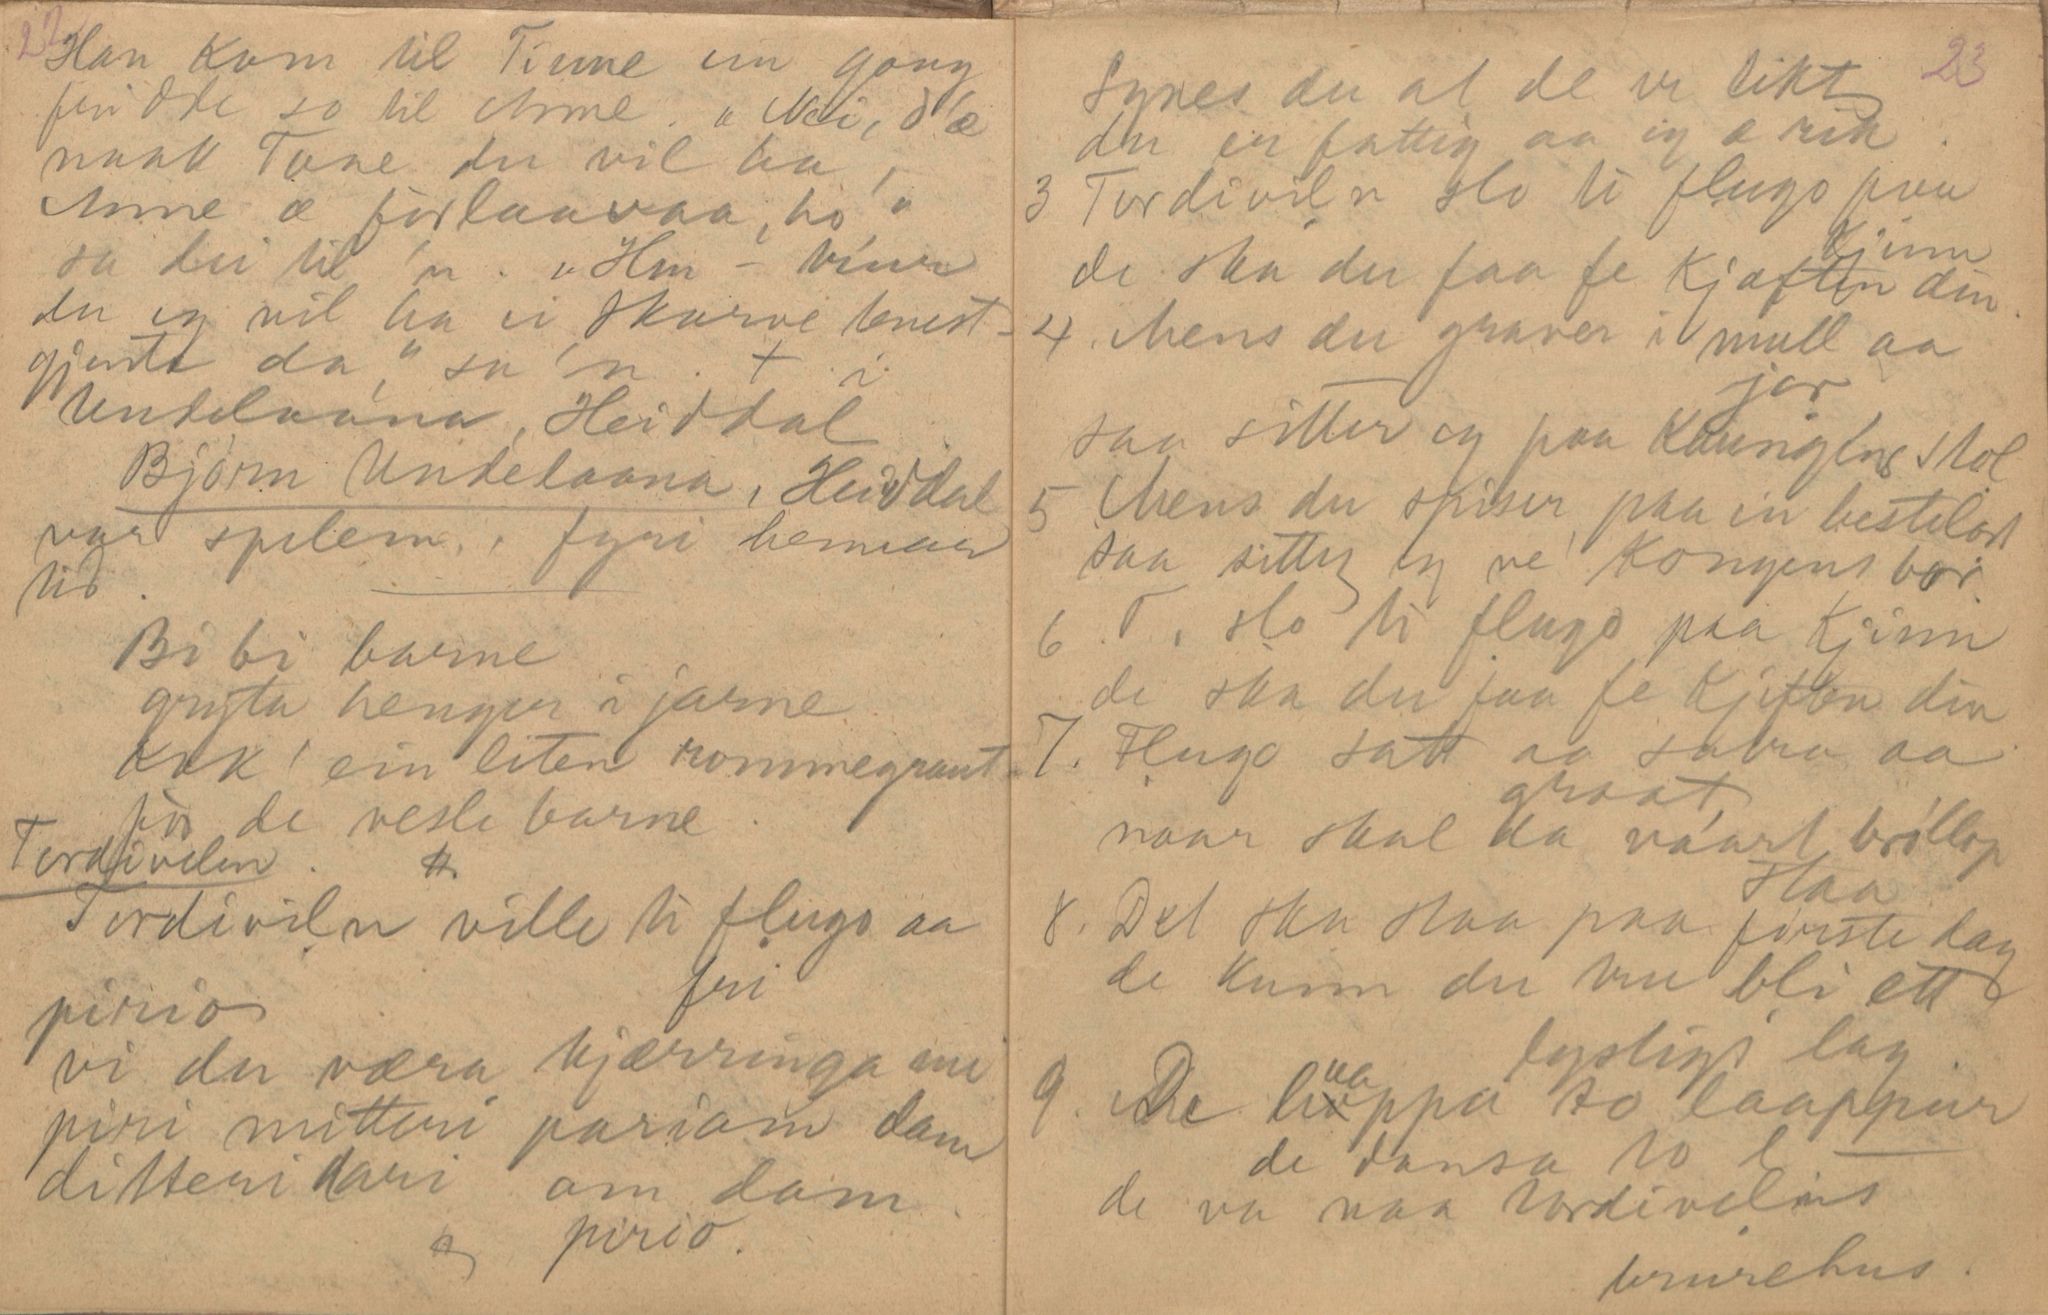 22
Han kom til Tinne ein gong
fridde so til Anne. „Nei, d'æ
naakk Tone du vil ha,
Anne æ forlaavaa, ho"
sa dei til 'n. „Hm – trur
du eg vil ha ei skarve tenest-
gjente da," sa 'n. + i
Undelaana, Heiddal
Bjørn Undelaana, Heiddal
var spelem. i fyri hennar
tid.
Bi bi barne
gryta henger i jarne
kok' ein liten rommegraut
før de vesle barne.
Tordivelen.
Tordiviln ville ti flugo aa
fri
pirio
vi du væra kjærringa mi
piri mitteri pariam dam
ditteri dari om dam.
pirio.
23
Synes du at de er likt
du er fattig aa eg æ rik.
3 Tordiviln slo ti flugo paa
kjinn
de ska du faa fe kjæften din.
4. Mens du graver i mull aa
jor
saa sitter eg paa kaungens stol
5 Mens du spiser paa en bestelort
saa sitter eg ve' kongens bor.
6. T. slo ti flugo paa kjinn
de ska du faa fe kjeften din
7. Flugo satt aa sabra aa
graat
naar skal da vaart brøllop
staa
8. Det ska staa paa første dag
de kunn du tru bli ett
lystigt lag.
9. De laappa to laappur
de dansa to l
de va naa tordivelens
brurehus.